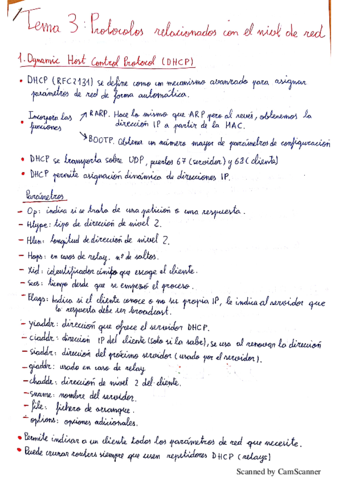 Tema 3: Protocolos relacionados con el nivel de red
1. Dynamic Host Control Protocol (DHCP)
• DHCP (RFC2131) se define como un mecanismo avanzado para asignar
parámetros de red de forma automática.
• Incorpora las funciones
→ RARP. Hace lo mismo que ARP pero al revés, obtenemos la
dirección IP a partir de la MAC.
→ BOOTP. Obtiene un número mayor de parámetros de configuración
• DHCP se transporta sobre UDP, puertos 67 (servidor) y 68 (cliente)
• DHCP permite asignación dinámica de direcciones IP.
Parámetros
- Op: indica si se trata de una petición o una respuesta.
- Htype: tipo de dirección de nivel 2.
- Hlen: longitud de dirección de nivel 2.
- Hops: en casos de relay. nº de saltos.
- Xid: identificador único que escoge el cliente.
- Secs: tiempo desde que se empezó el proceso.
- Flags: Indica si el cliente conoce o no su propia IP, le indica al servidor que
la respuesta debe ser broadcast.
- yiaddr: dirección que ofrece el servidor DHCP.
- ciaddr: dirección IP del cliente (solo si la sabe), se usa al renovar la dirección
- siaddr: dirección del próximo servidor (usado por el servidor).
- giaddr: usado en caso de relay
- chaddr: dirección de nivel 2 del cliente.
- sname: nombre del servidor.
- file: fichero de arranque.
- options: opciones adicionales.
• Permite indicar a un cliente todos los parámetros de red que necesite.
• Puede cruzar routers siempre que sean repetidores DHCP (relays)
Scanned by CamScanner